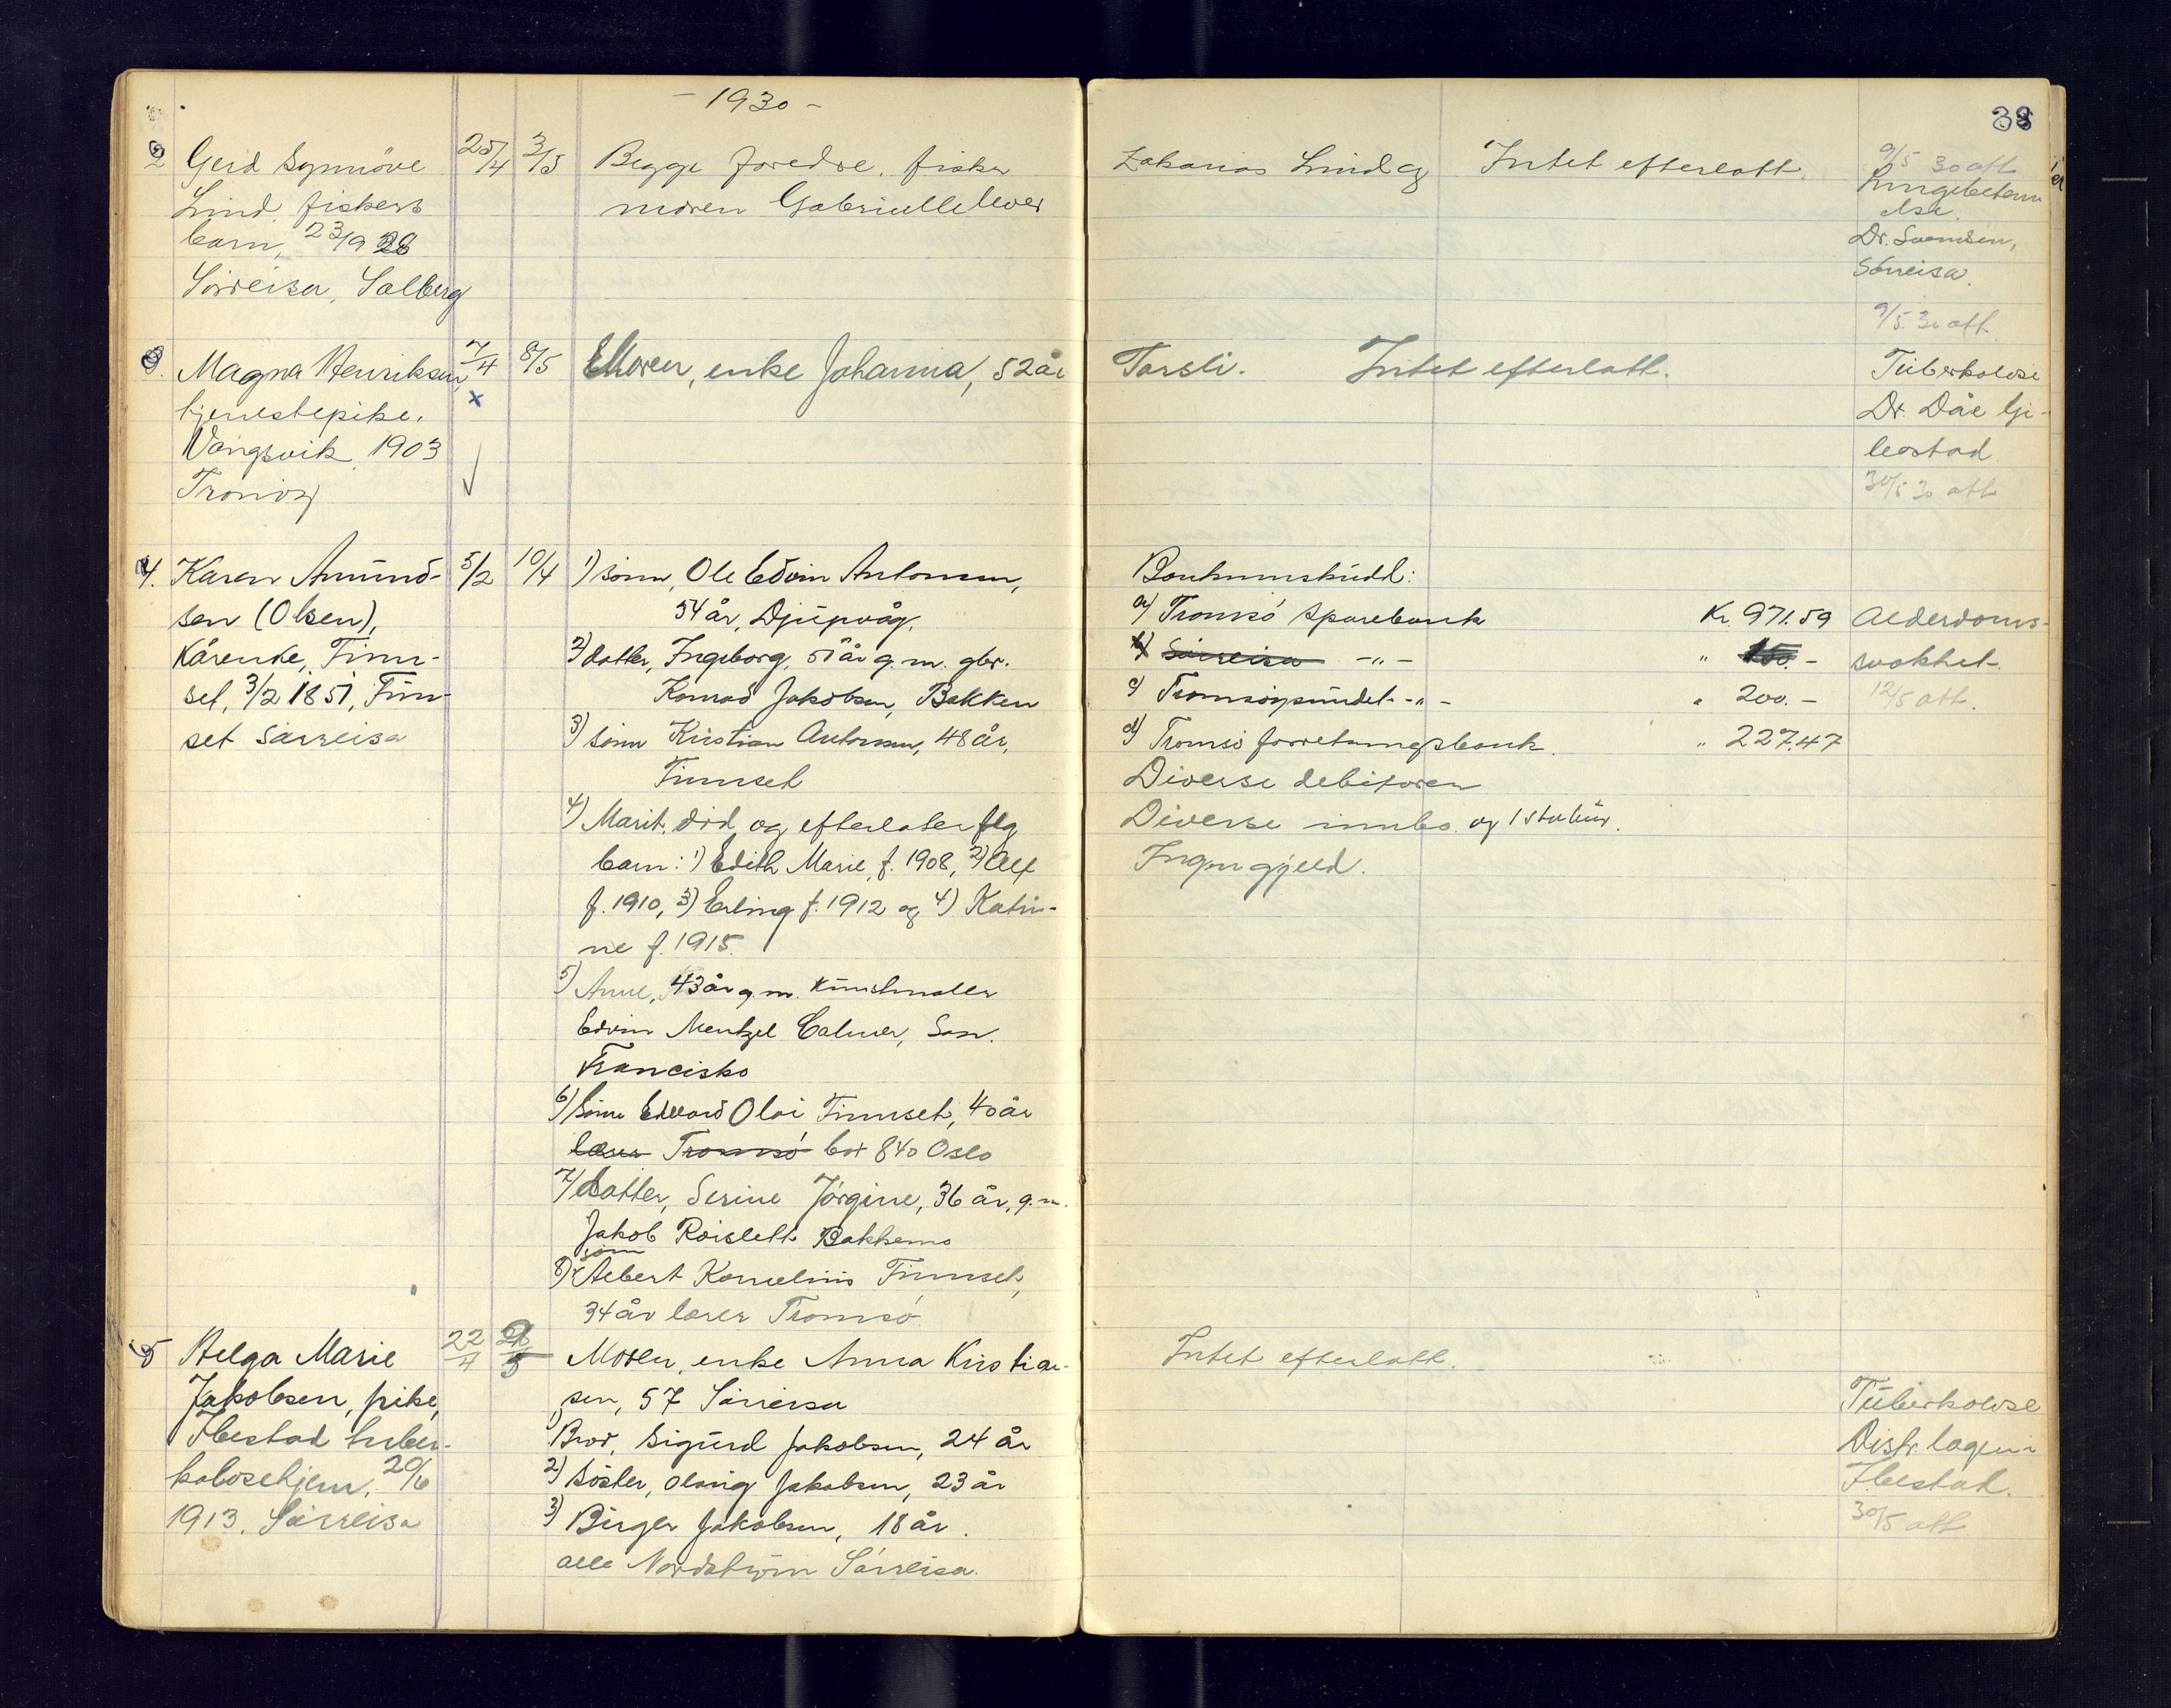 - 1930 -
38
2 Gerd Synnöve 25/4 3/5 Begge foredre, fisker Zakarias Lind og Intet efterlatt. 9/5 30 att
Lind, fiskers moren Gabrielle lever Lungebetenn
barn, 23/9 28 else.
Sörreisa, Salberg Dr. Svendsen,
Sörreisa.
9/5 30 att
3. Magna Henriksen, 7/4 8/5 Moren, enke Johanna, 52 år Torsli. Intet efterlatt. Tuberkolose
tjenestepike, x Dr. Dåe Gi-
Vangsvik, 1903 beostad
Tronöy 30/5 30 att
4. Karen Amund- 5/2 10/4 1) sönn, Ole Edvin Antonsen, Bankinnskudd:
sen (Olsen), 54 år, Djupvåg. a) Tromsö Sparebank Kr. 971.59 Alderdoms-
Kårenke, Finn- 2) datter, Ingeborg, 51 år g.m. gbr. b) Sörreisa -"- " 150.- svakhet.
set, 3/2 1851, Finn- Konrad Jakobsen, Bakken c) Tromsöysundet -"- " 200.- 12/5 att.
set Sörreisa 3) sönn Kristian Antonsen, 48 år, d) Tromsö forretningsbank. " 227.47
Finnset Diverse debitorer
4) Marit, död og efterlater flg Diverse innbo og 1 stabur.
barn: 1) Edith Marie, f. 1908, 2) Alf Ingen gjeld.
f. 1910, 3) Erling f. 1912 og 4) Katri-
ne f. 1915.
5) Anne, 43 år g.m. Kunstmaler
Edvin Mentzel Calmer, San.
Francisko
6) Sönn Edvard Olai Finnset, 40 år
lærer Tromsö box 840 Oslo
7) datter, Serine Jörgine, 36 år, g.m.
Jakob Röislett Bakkemo
sönn
8) Albert Kornelius Finnset,
34 år lærer Tromsö
5 Helga Marie 22/4 5 Moren, enke Anna Kristian- Intet efterlatt.
Jakobsen, pike, sen, 57 Sörreisa Tuberkolose
Ibestad tuber- 1) Bror, Sigurd Jakobsen, 24 år Distr. lægen i
kolosehjem, 20/6 2) Söster, Olaug Jakobsen, 23 år Ibestad.
1913, Sörreisa 3) Birger Jakobsen, 18 år. 30/5 att
alle Nordström Sörreisa.